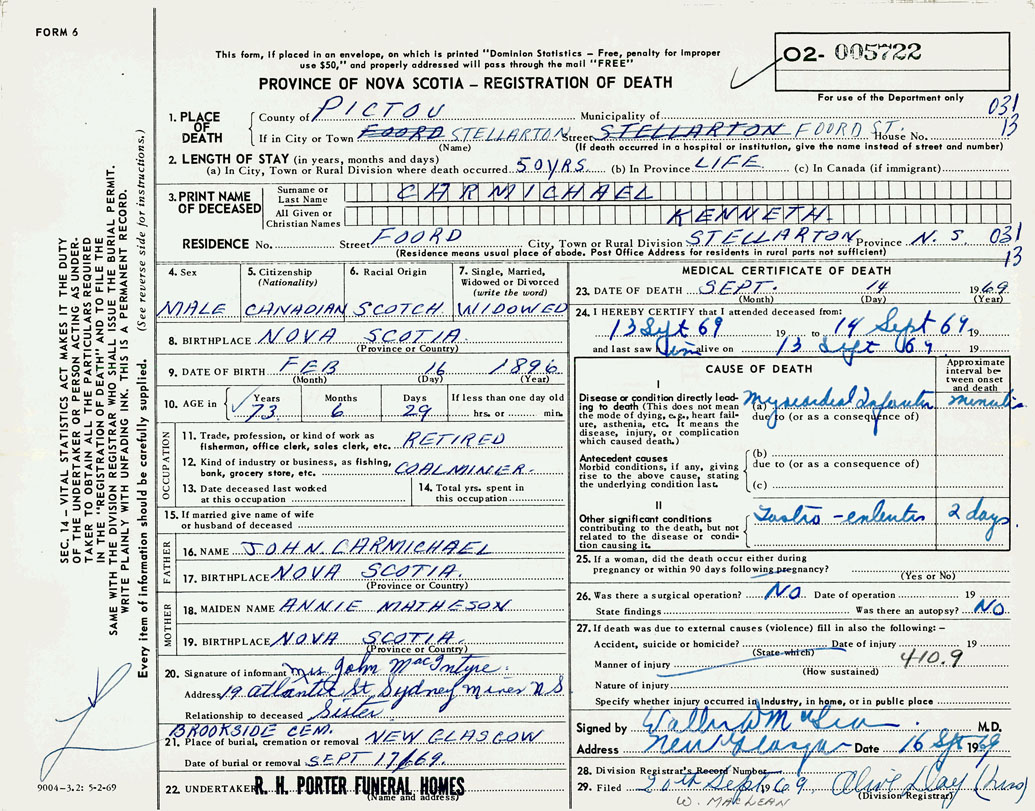 FORM 6
This form, if placed in an envelope, on which is printed "Dominion Statistics – Free, penalty for improper
use $50," and properly addressed will pass through the mail "FREE"
O2- 005722
PROVINCE OF NOVA SCOTIA – REGISTRATION OF DEATH
For use of the Department only
031
13
1. PLACE OF DEATH
County of PICTOU Municipality of
If in City or Town FOORD STELLARTON Street STELLARTON FOORD ST. House No.
(Name) (If death occurred in a hospital or institution, give the name instead of street and number)
2. LENGTH OF STAY (in years, months and days)
(a) In City, Town or Rural Division where death occurred 50 YRS. (b) In Province LIFE (c) In Canada (if immigrant)
3. PRINT NAME OF DECEASED
Surname or Last Name CARMICHAEL
All Given or Christian Names KENNETH.
RESIDENCE No. Street FOORD City, Town or Rural Division STELLARTON Province N. S 031
(Residence means usual place of abode. Post Office Address for residents in rural parts not sufficient) 13
4. Sex
MALE
5. Citizenship (Nationality)
CANADIAN
6. Racial Origin
SCOTCH
7. Single, Married, Widowed or Divorced (write the word)
WIDOWED
8. BIRTHPLACE NOVA SCOTIA
(Province or Country)
9. DATE OF BIRTH FEB 16 1896
(Month) (Day) (Year)
10. AGE in Years Months Days If less than one day old
73 6 29 hrs. or min.
OCCUPATION
11. Trade, profession, or kind of work as
fisherman, office clerk, sales clerk, etc. RETIRED
12. Kind of industry or business, as fishing,
bank, grocery store, etc. COALMINER.
13. Date deceased last worked
at this occupation
14. Total yrs. spent in
this occupation
15. If married give name of wife
or husband of deceased
FATHER
16. NAME JOHN. CARMICHAEL
17. BIRTHPLACE NOVA SCOTIA.
(Province or Country)
MOTHER
18. MAIDEN NAME ANNIE MATHESON
19. BIRTHPLACE NOVA SCOTIA.
(Province or Country)
20. Signature of informant Mrs John MacIntyre.
Address 19 Atlantic St Sydney Mines N S
Relationship to deceased Sister
BROOKSIDE CEM.
21. Place of burial, cremation or removal NEW GLASGOW
Date of burial or removal SEPT 17/69.
22. UNDERTAKER R. H. PORTER FUNERAL HOMES
(Name and address)
MEDICAL CERTIFICATE OF DEATH
23. DATE OF DEATH SEPT. 14 1969
(Month) (Day) (Year)
24. I HEREBY CERTIFY that I attended deceased from:
13 Sept 69 19 to 14 Sept 69 19
and last saw him alive on 13 Sept 69 19
CAUSE OF DEATH
Approximate interval between onset and death
I
Disease or condition directly leading
to death (This does not mean
the mode of dying, e.g., heart failure,
asthenia, etc. It means the
disease, injury, or complication
which caused death.)
(a) Myocardial Infarction minutes
due to (or as a consequence of)
Antecedent causes
Morbid conditions, if any, giving
rise to the above cause, stating
the underlying condition last.
(b)
due to (or as a consequence of)
(c)
II
Other significant conditions
contributing to the death, but not
related to the disease or condition
causing it.
Gastro-enteritis 2 days.
25. If a woman, did the death occur either during
pregnancy or within 90 days following pregnancy?
(Yes or No)
26. Was there a surgical operation? NO Date of operation 19
State findings Was there an autopsy? NO
27. If death was due to external causes (violence) fill in also the following:–
Accident, suicide or homicide? Date of injury 19
(State which) 410.9
Manner of injury
(How sustained)
Nature of injury
Specify whether injury occurred in Industry, in home, or in public place
Signed by M.D.
Address New Glasgow Date 16 Sept 1969
28. Division Registrar's Record Number
29. Filed 20th Sept 1969 Olive Day (Miss)
(Division Registrar)
W. MACLEAN
SEC. 14 – VITAL STATISTICS ACT MAKES IT THE DUTY
OF THE UNDERTAKER OR PERSON ACTING AS UNDERTAKER
TO OBTAIN ALL THE PARTICULARS REQUIRED
IN THE "REGISTRATION OF DEATH" AND TO FILE THE
SAME WITH THE DIVISION REGISTRAR WHO SHALL ISSUE THE BURIAL PERMIT.
WRITE PLAINLY WITH UNFADING INK. THIS IS A PERMANENT RECORD.
Every item of information should be carefully supplied. (See reverse side for instructions.)
9004–3.2: 5-2-69